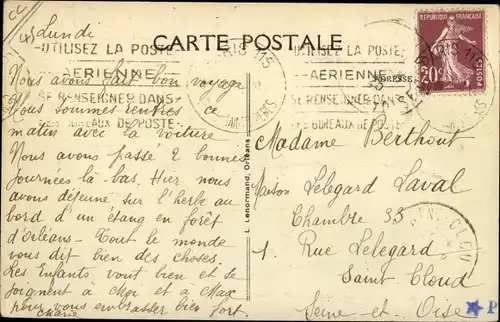 Lundi
CARTE POSTALE
UTILISEZ LA POSTE
AERIENNE
SE RENSEIGNER DANS
LES BUREAUX DE POSTE
PARIS 115
UTILISEZ LA POSTE
AERIENNE
SE RENSEIGNER DANS
LES BUREAUX DE POSTE
ADRESSE
REPUBLIQUE FRANÇAISE
20c
Nous avons fait bon voyage
Nous sommes rentrés ce
matin avec la voiture
Nous avons passé 2 bonnes
journées là-bas. Hier nous
avons déjeuné sur l'herbe au
bord d'un étang en forêt
d'Orléans - Tout le monde
vous dit bien des choses.
Les Enfants vont bien et se
joignent à Moi et à Max
pour vous embrasser bien fort.
Marie
L. Lenormand, Orléans
Madame Berthout
Maison Lelegard Laval
Chambre 33
1. Rue Lelegard
Saint Cloud
Seine-et-Oise
SAINT-CLOUD
P